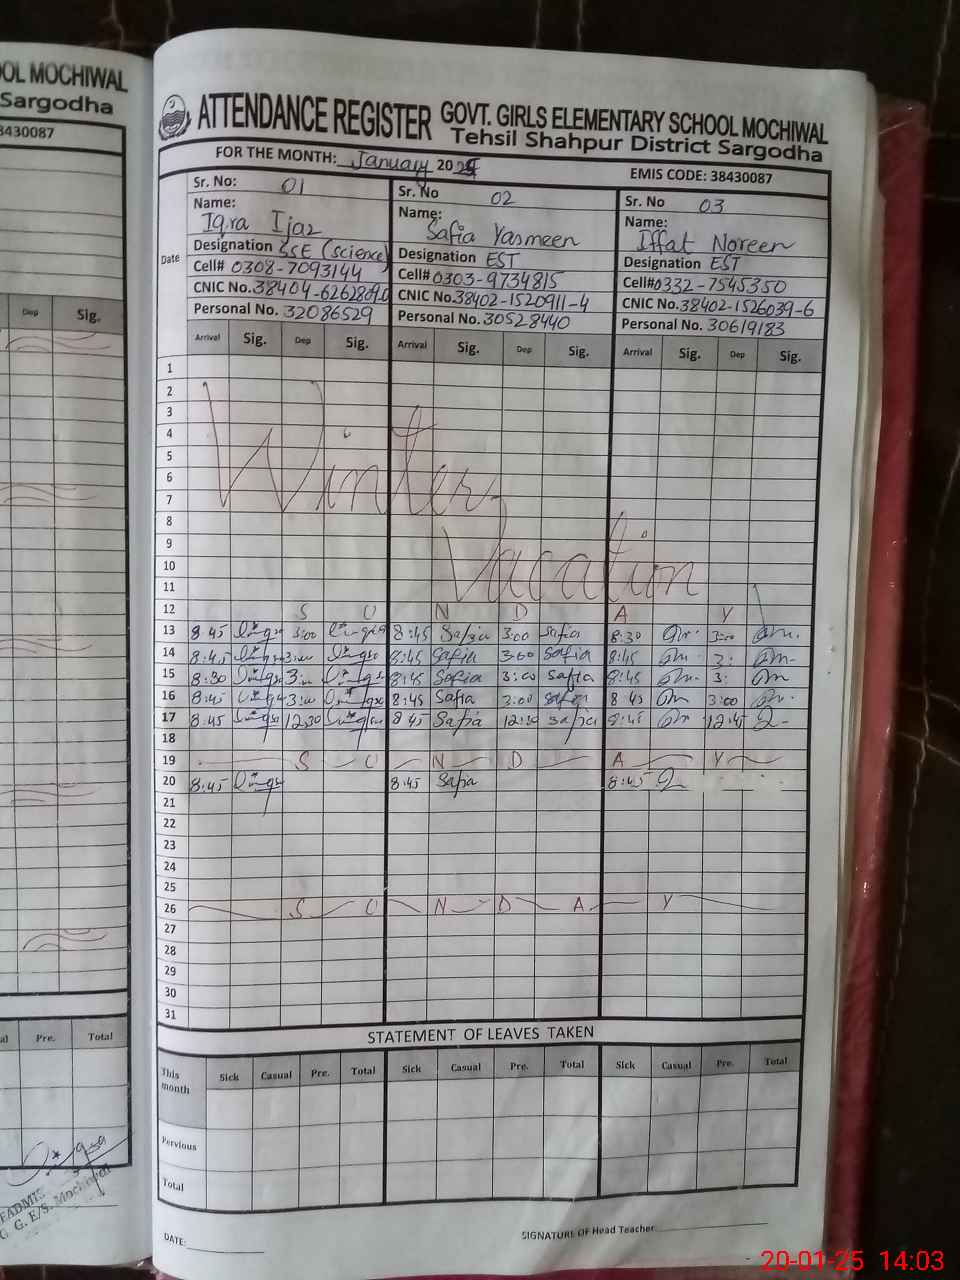 OOL MOCHIWAL
Sargodha
8430087
Dep Sig.
Pre. Total
ATTENDANCE REGISTER GOVT. GIRLS ELEMENTARY SCHOOL MOCHIWAL
Tehsil Shahpur District Sargodha
FOR THE MONTH: January 2025 EMIS CODE: 38430087
Date
Sr. No: 01
Name:
Iqra Ijaz
Designation SSE (science)
Cell# 0308-7093144
CNIC No.
Personal No. 32086529
Sr. No 02
Name:
Safia Yasmeen
Designation EST
Cell# 0303-9734815
CNIC No. 38402-1520911-4
Personal No. 30528440
Sr. No 03
Name:
Iffat Noreen
Designation EST
Cell# 0332-7545350
CNIC No. 38402-1526039-6
Personal No. 30619183
Arrival Sig. Dep Sig. Arrival Sig. Dep Sig. Arrival Sig. Dep Sig.
1
2
3
4
5
6
7
Winter
8
9
10
11
Vacation
12 S U N D A Y
13 8:45 3:00 8:45 Safia 3:00 Safia 8:30 3:00
14 8:45 3:00 8:45 Safia 3:00 Safia 8:45 3:
15 8:30 3: 8:45 Safia 3:00 Safia 8:45 3:
16 8:45 3:00 8:45 Safia 3:00 Safia 8:45 3:00
17 8:45 12:30 8:45 Safia 12:30 Safia 8:45 12:45
18
19 S U N D A Y
20 8:45 8:45 Safia 8:45
21
22
23
24
25
26 S U N D A Y
27
28
29
30
31
STATEMENT OF LEAVES TAKEN
This month Sick Casual Pre. Total Sick Casual Pre. Total Sick Casual Pre. Total
Pervious
Total
DATE: SIGNATURE OF Head Teacher
20-01-25 14:03